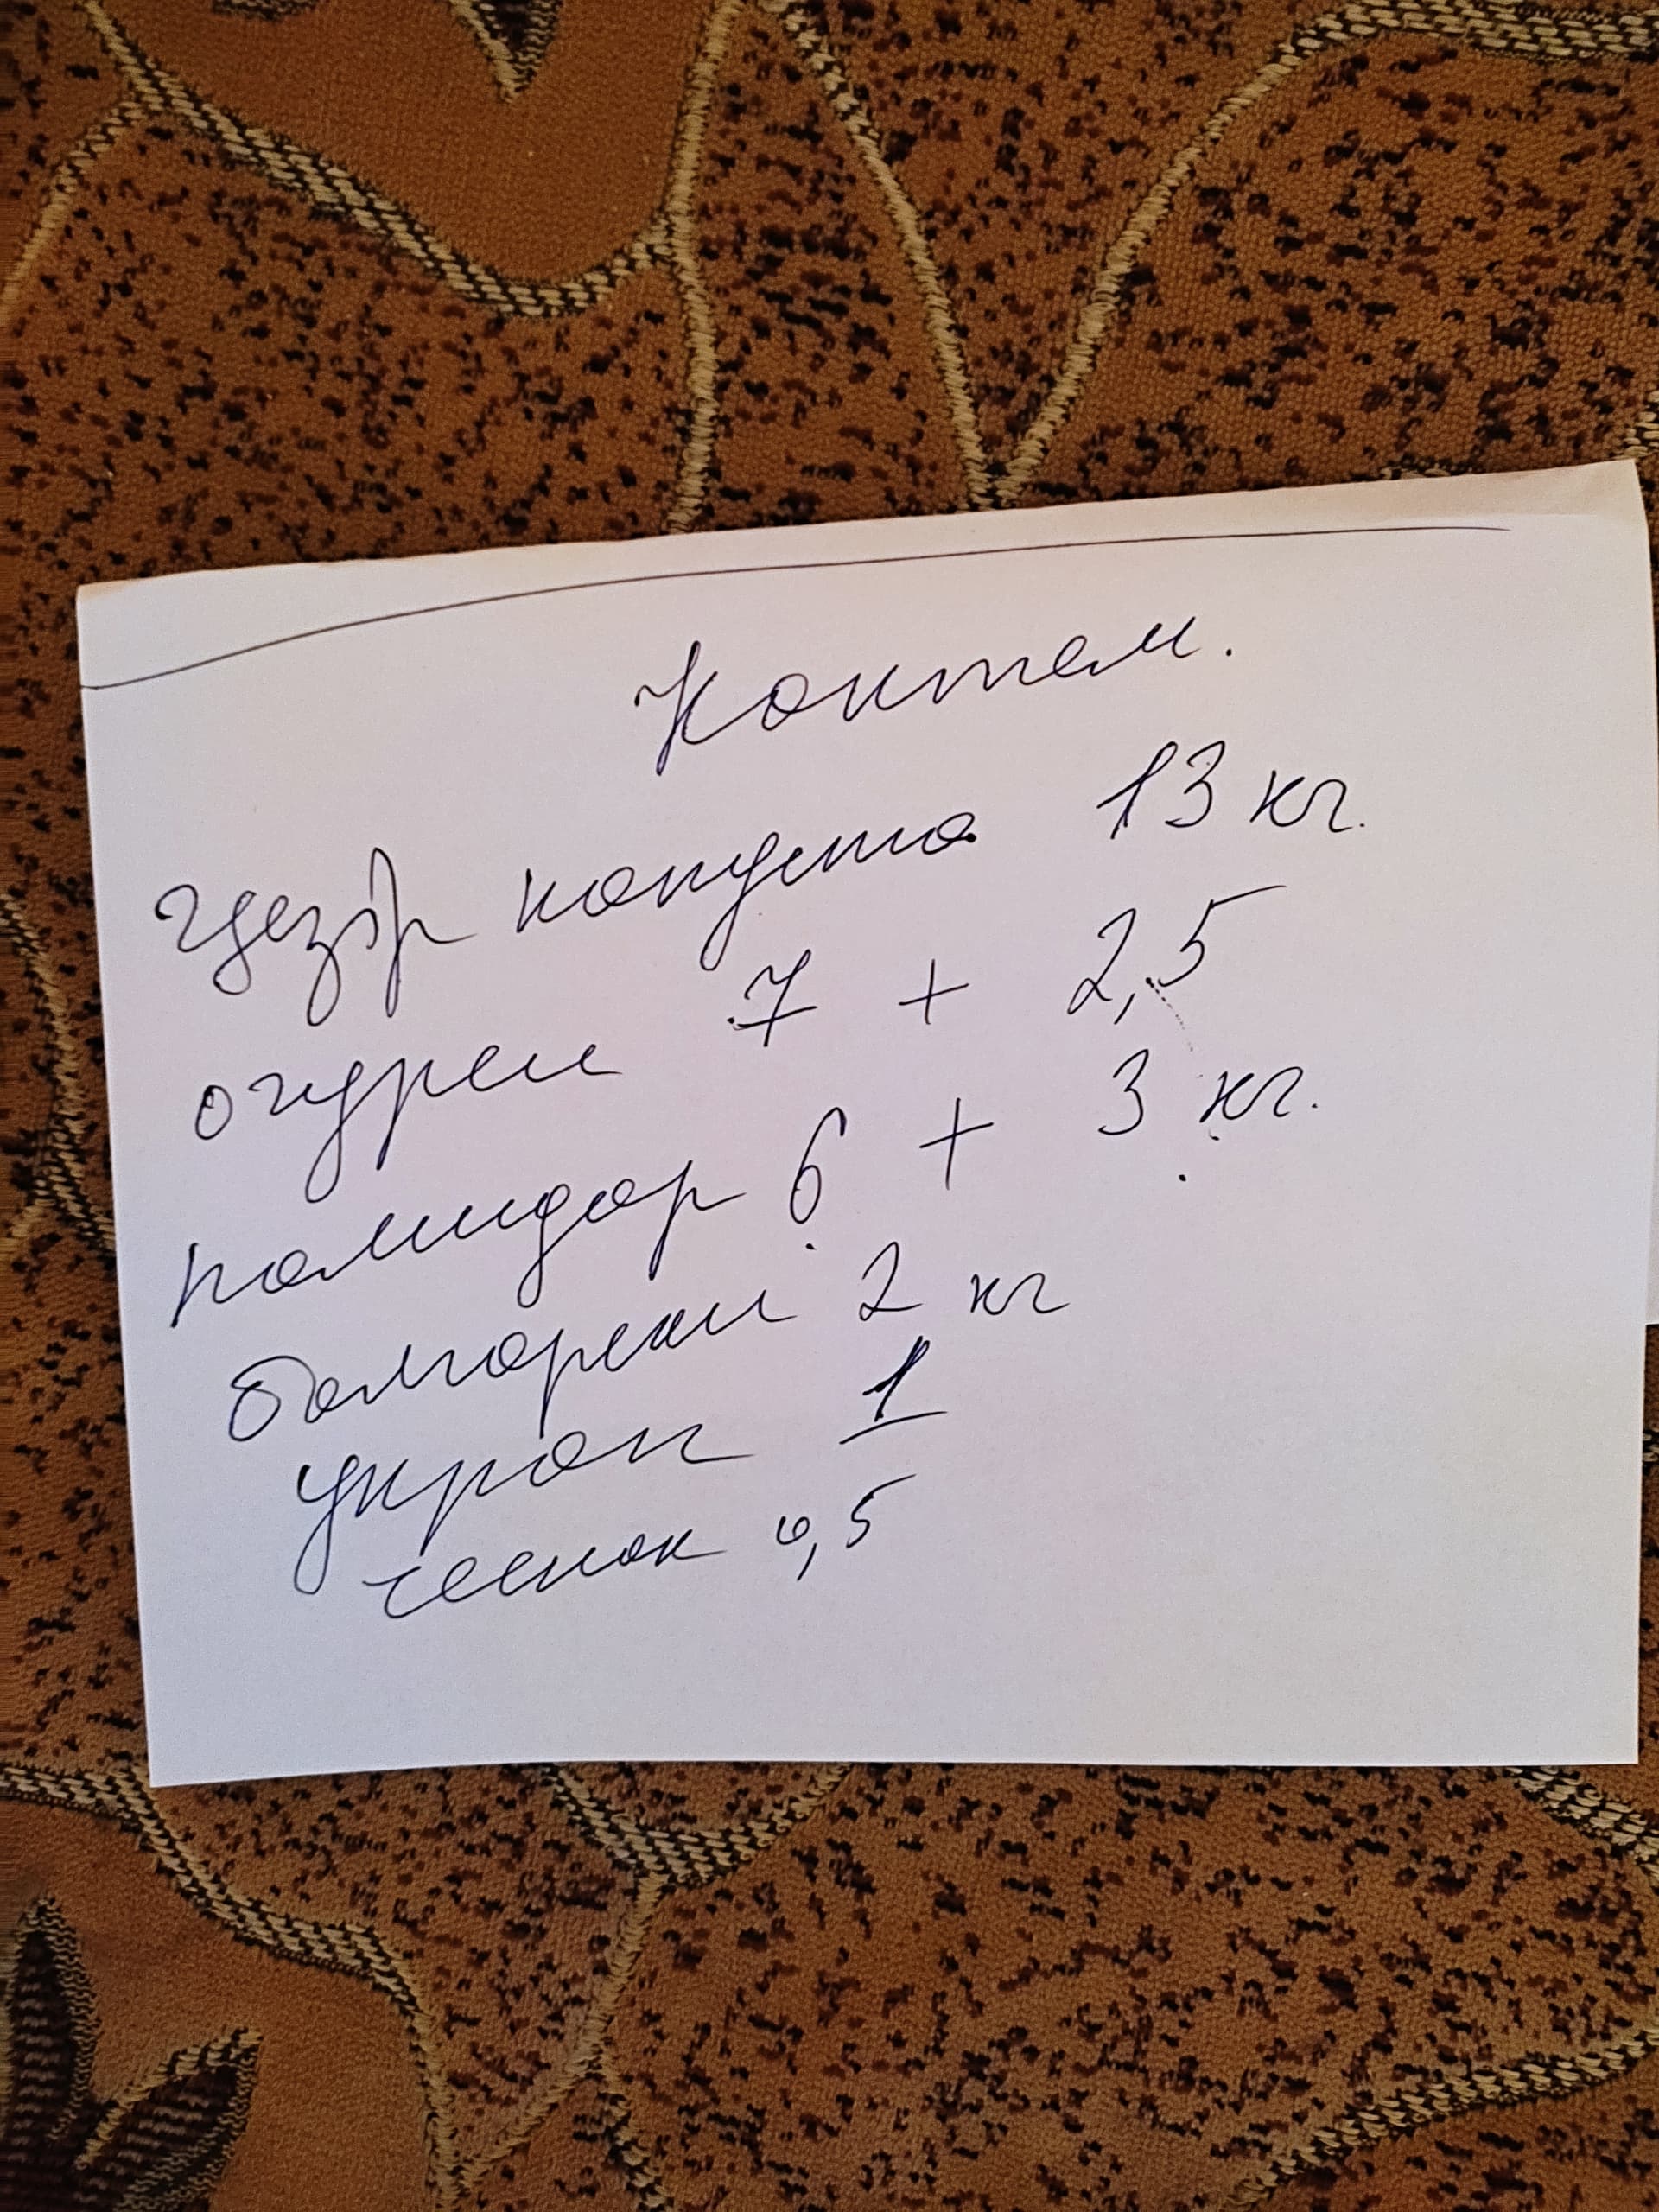 Коктем.
капуста 13 кг.
огурец 7 + 2,5
помидор 6 + 3 кг.
болгарски 2 кг
укроп 1
чеснок 0,5